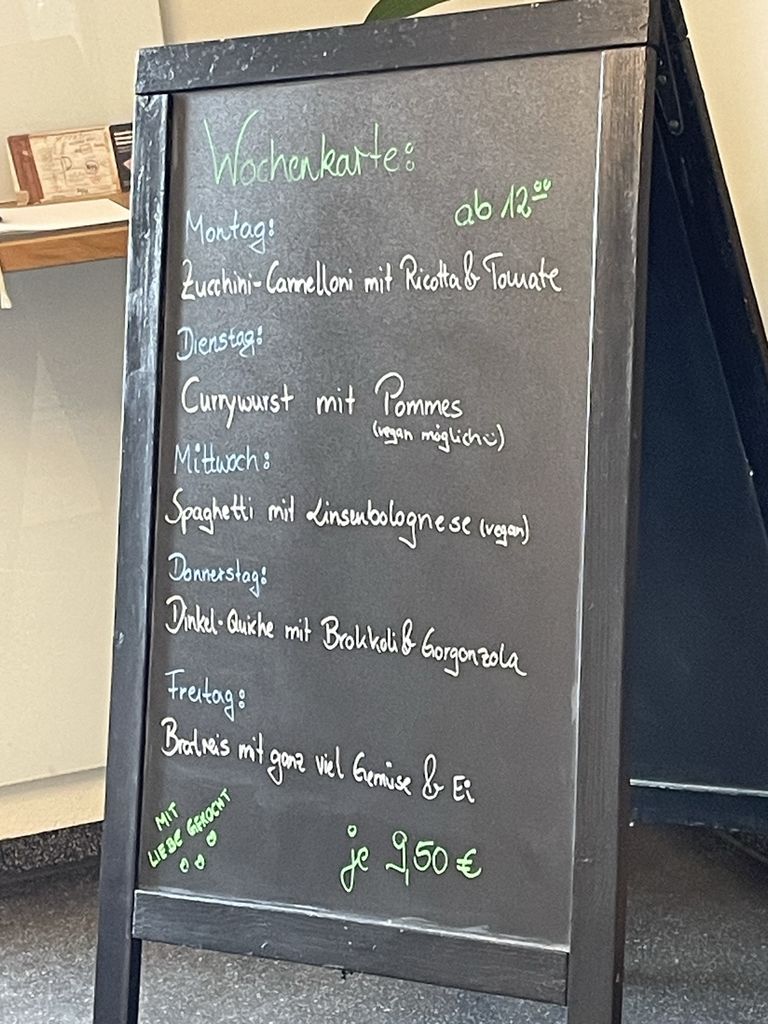 Wochenkarte:
ab 12⁰⁰
Montag:
Zucchini-Cannelloni mit Ricotta & Tomate
Dienstag:
Currywurst mit Pommes
(vegan möglich :))
Mittwoch:
Spaghetti mit Linsenbolognese (vegan)
Donnerstag:
Dinkel-Quiche mit Brokkoli & Gorgonzola
Freitag:
Bratreis mit ganz viel Gemüse & Ei
MIT
LIEBE GEKOCHT
je 9,50 €